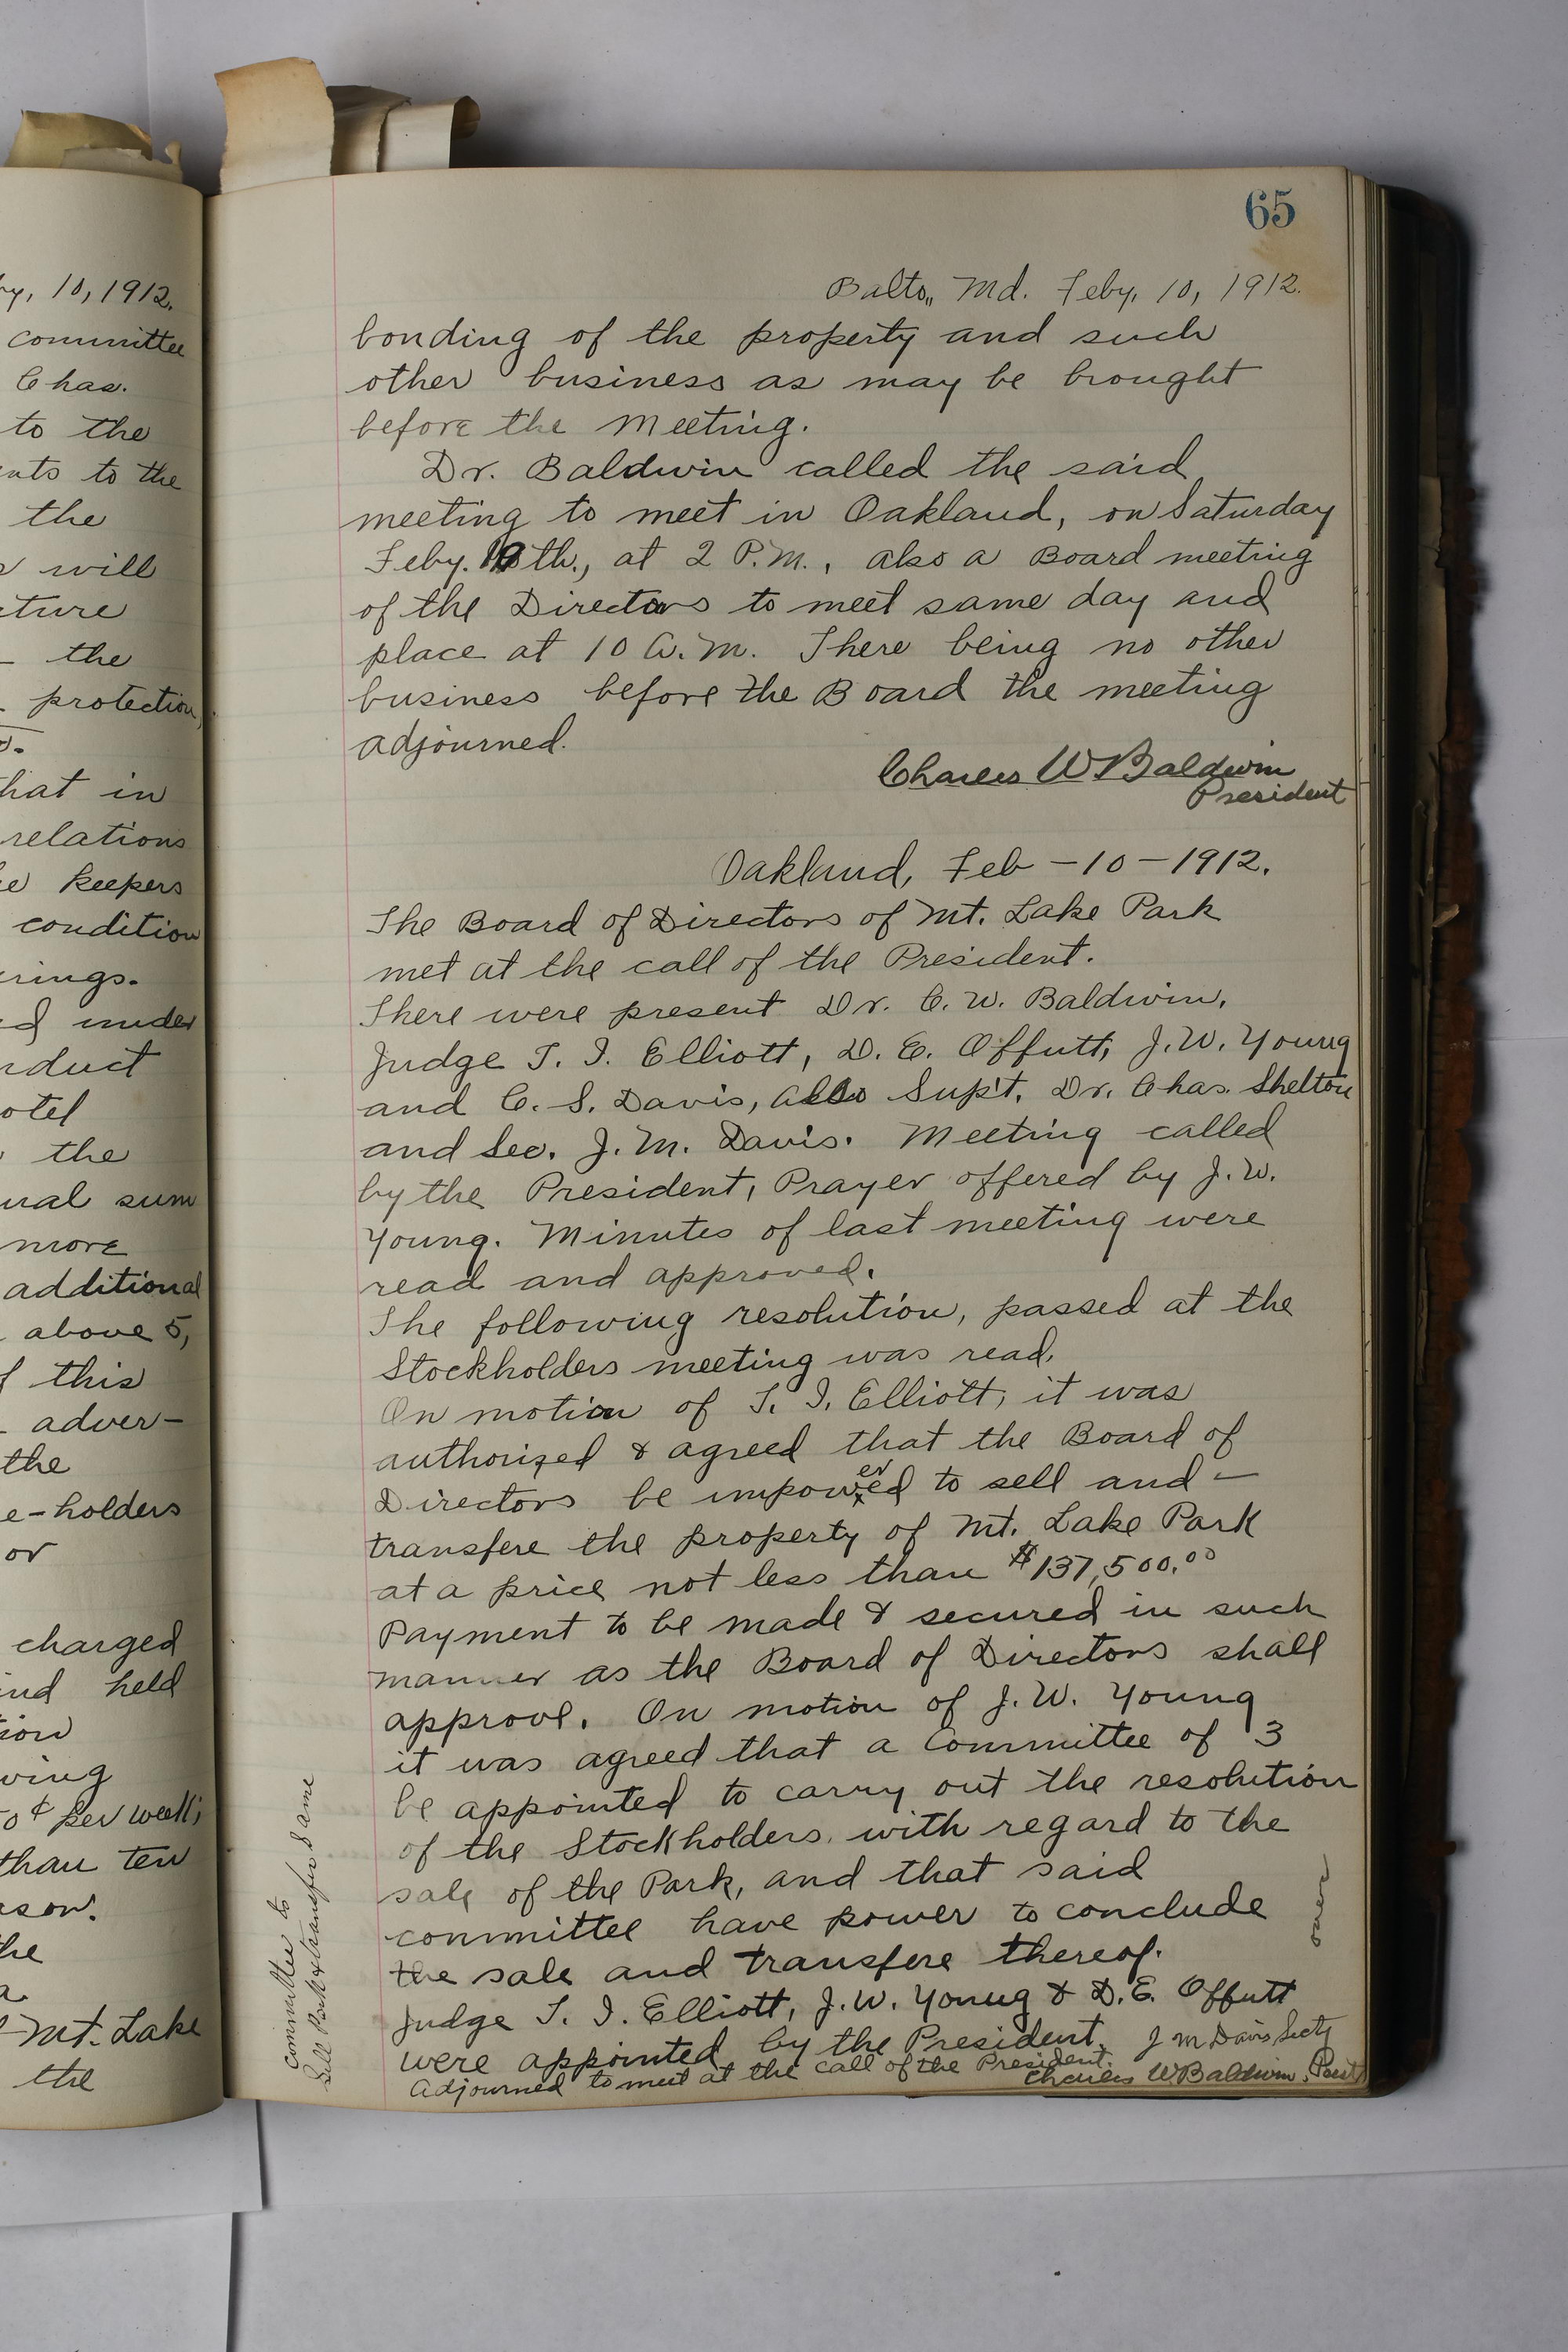 y, 10, 1912.
committee
Chas.
to the
nts to the
the
will
cture
the
protection,
that in
relations
keepers
condition
rings.
d under
nduct
otel
the
ual sum
more
additional
above 5,
f this
adver-
the
e-holders
or
charged
ind held
tion
wing
¢ per week;
than ten
ason.
the
Mt. Lake
the
65
Balto,, Md. Feby, 10, 1912.
bonding of the property and such
other business as may be brought
before the Meeting.
Dr. Baldwin called the said
meeting to meet in Oakland, on Saturday
Feby. 10th., at 2 P.M., also a Board meeting
of the Directors to meet same day and
place at 10 A.M. There being no other
business before the Board the meeting
adjourned.
Charles W Baldwin
President
Oakland, Feb - 10 - 1912.
The Board of Directors of Mt. Lake Park
met at the call of the President.
There were present Dr. C. W. Baldwin,
Judge T. I. Elliott, D. E. Offutt, J. W. Young
and C. S. Davis, also Sup't. Dr. Chas. Shelton
and Sec. J. M. Davis. Meeting called
by the President, Prayer offered by J. W.
Young. Minutes of last meeting were
read and approved.
The following resolution, passed at the
Stockholders meeting was read.
On motion of T. I. Elliott, it was
authorized & agreed that the Board of
Directors be impowered to sell and -
transfere the property of Mt. Lake Park
at a price not less than $137,500.00
Payment to be made & secured in such
manner as the Board of Directors shall
approve. On motion of J. W. Young
it was agreed that a Committee of 3
be appointed to carry out the resolution
of the Stockholders, with regard to the
sale of the Park, and that said
committee have power to conclude
the sale and transfere thereof.
Judge T. I. Elliott, J. W. Young & D. E. Offutt
were appointed by the President. J M Davis Secty
Adjourned to meet at the call of the President.
Charles W Baldwin, Prest
committee to
Sell Park & transfer Same
over